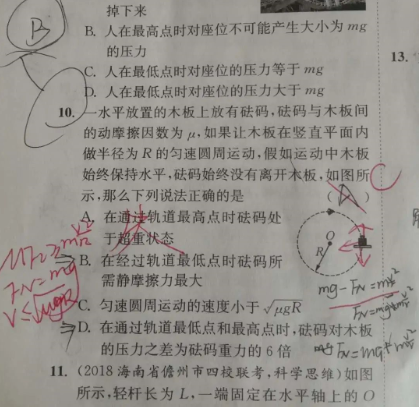 掉下来
B. 人在最高点时对座位不可能产生大小为 mg
的压力
C. 人在最低点时对座位的压力等于 mg
D. 人在最低点时对座位的压力大于 mg
13.
10. 一水平放置的木板上放有砝码,砝码与木板间
的动摩擦因数为 μ,如果让木板在竖直平面内
做半径为 R 的匀速圆周运动,假如运动中木板
始终保持水平,砝码始终没有离开木板,如图所
示,那么下列说法正确的是 ( )
A. 在通过轨道最高点时砝码处
于超重状态
B. 在经过轨道最低点时砝码所
需静摩擦力最大
C. 匀速圆周运动的速度小于 √μgR
D. 在通过轨道最低点和最高点时,砝码对木板
的压力之差为砝码重力的 6 倍
O
R
B
C
FN = mg
V ≤ √μgR
mg - FN = m v²/R
FN = mg + m v²/R
11. (2018 海南省儋州市四校联考,科学思维)如图
所示,轻杆长为 L,一端固定在水平轴上的 O